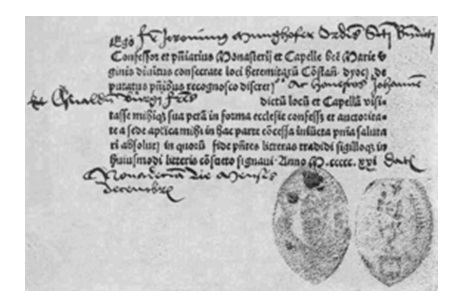 Ego fr Jeronimus Munghofer Ordīs Scti Bn̄dicti
Confessor et pn̄iarius Monasterij et Capelle btē Marie v
ginis diuitus consecrate loci heremitarū Cōstan̄. dyoc̄. de
putatus pn̄tibus recognosco discret Ac honestos Johannē
et dictū locū et Capellā visi
tasse mihiq̄ sua pctā in forma ecclesie confessos et auctorita
te a sede aplica mihi in hac parte cōcessa iniūcta pnīa saluta
ri absoluj in quorū fidē pn̄tes litteras tradidi sigilloq̄ in
huiusmodi litteris cōsueto signaui. Anno M.ccccc.xxj dat̄
Nona decima die Mensis
decembr